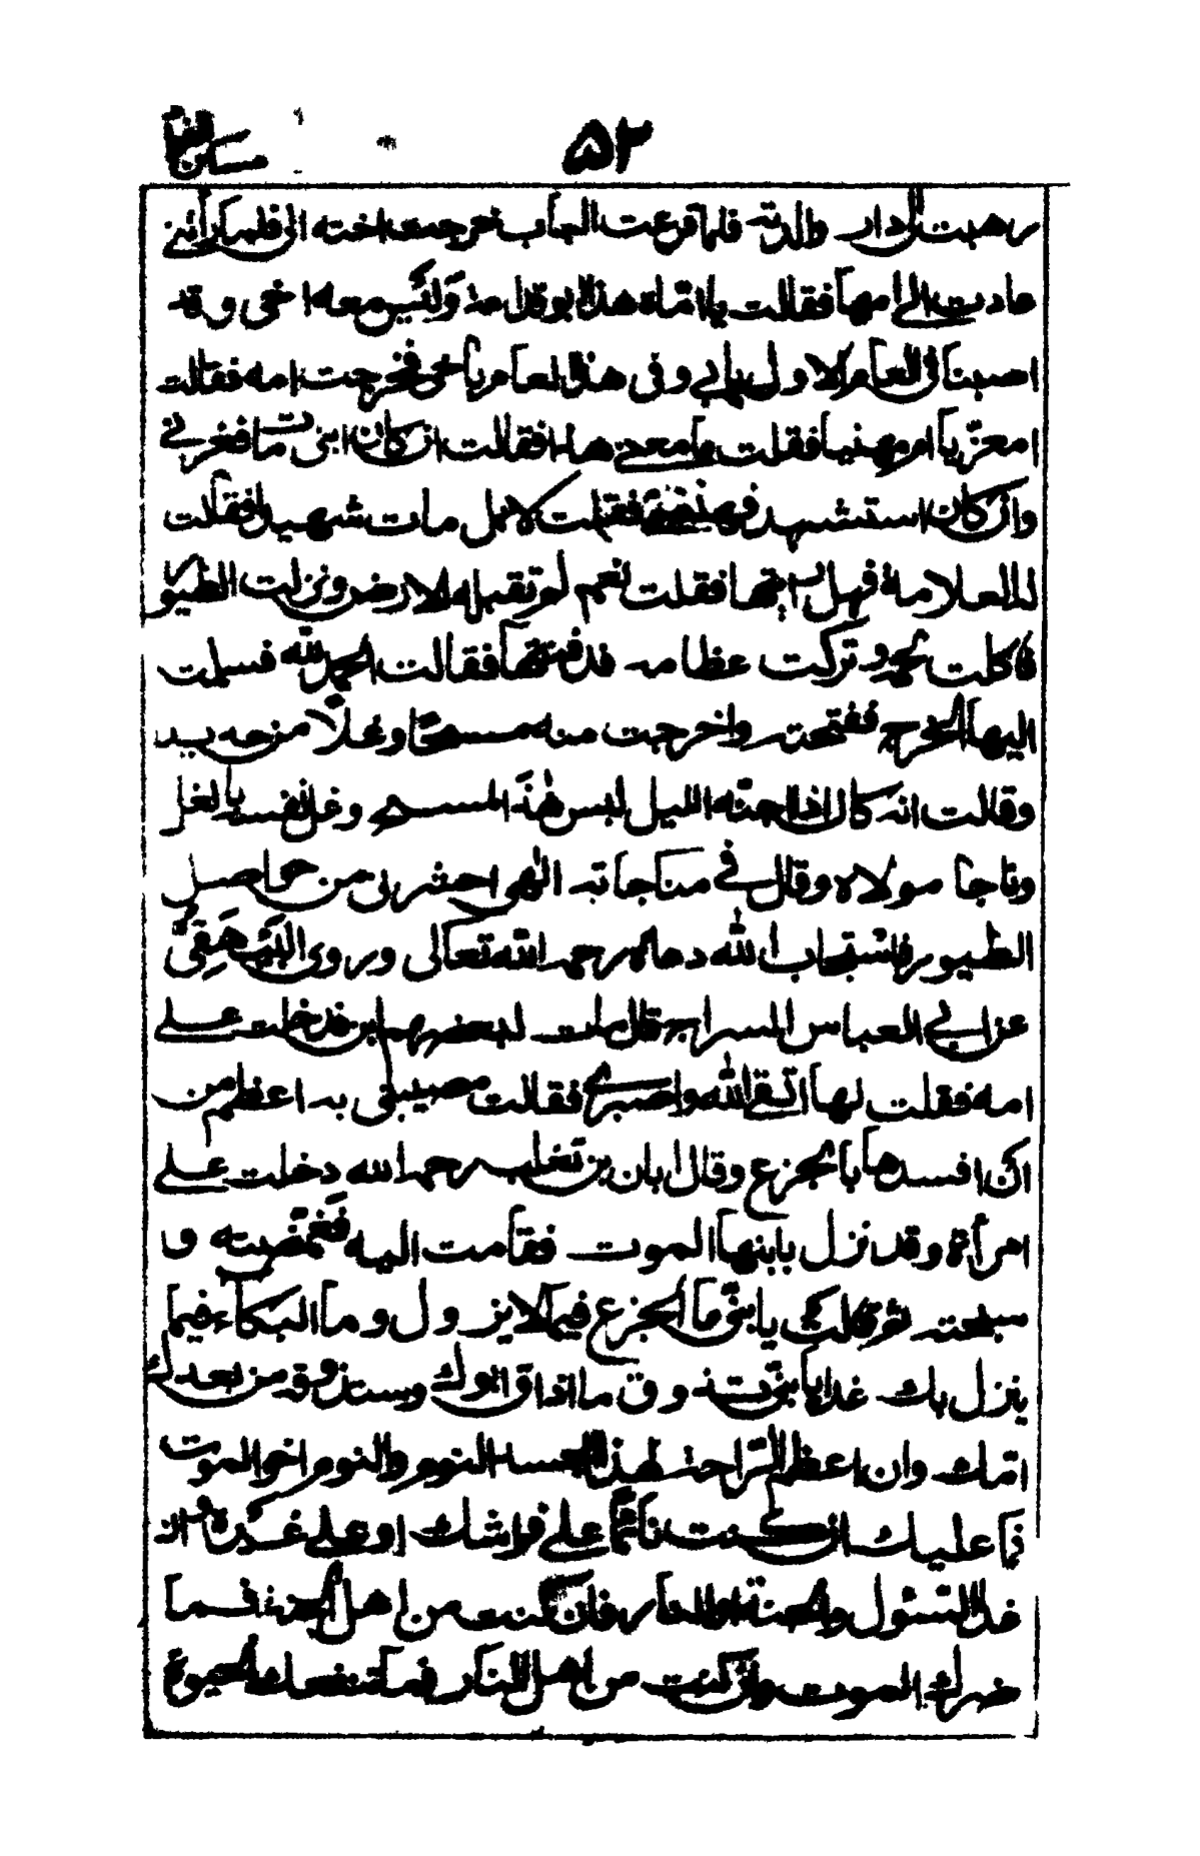 مسكن الفؤاد ۵۲
رهبت الى دار والدته فلما قرعت الباب خرجت اخته الى فلما رأتنى
عادت الى امها فقالت يا اماه هذا ابو قدامة وليس معه اخى وقد
اصبنا فى العام الاول بابى وفى هذا العام باخى فخرجت امه فقالت
امعزيا ام مهنيا فقلت ما معنى هذا فقالت ان كان ابنى مات فعزنى
وان كان استشهد فهننى فقلت لا بل مات شهيدا فقالت
له علامة فهل رايتها فقلت نعم لم تقبله الارض ونزلت الطيور
فاكلت لحمه وتركت عظامه فدفنتها فقالت الحمد لله فسلمت
اليها الخرج ففتحته واخرجت منه مسحا وغلا من حديد
وقالت انه كان اذا جنه الليل لبس هذا المسح وغل نفسه بالغل
وناجا مولاه وقال فى مناجاته الهى احشرنى من حواصل
الطيور فاستجاب الله دعاه رحمه الله تعالى وروى البيهقى
عن ابى العباس السراج قال مات لبعضهم ابن فدخلت على
امه فقلت لها اتقى الله واصبرى فقالت مصيبتى به اعظم من
ان افسدها بالجزع وقال ابان بن تغلب رحمه الله دخلت على
امرأة وقد نزل بابنها الموت فقامت اليه فغمضته و
سجته ثم قالت يا بنى ما الجزع فيما لا يزول وما البكاء فيما
ينزل بك غدا يا بنى تذوق ما ذاق ابوك وستذوقه من بعدك
امك وان اعظم الراحة لهذا الجسد النوم والنوم اخو الموت
فما عليك ان كنت نائما على فراشك او على غيره وان
غدا السؤل والجنة والنار فان كنت من اهل الجنة فما
ضرك الموت وان كنت من اهل النار فما تنفعك الحيوة